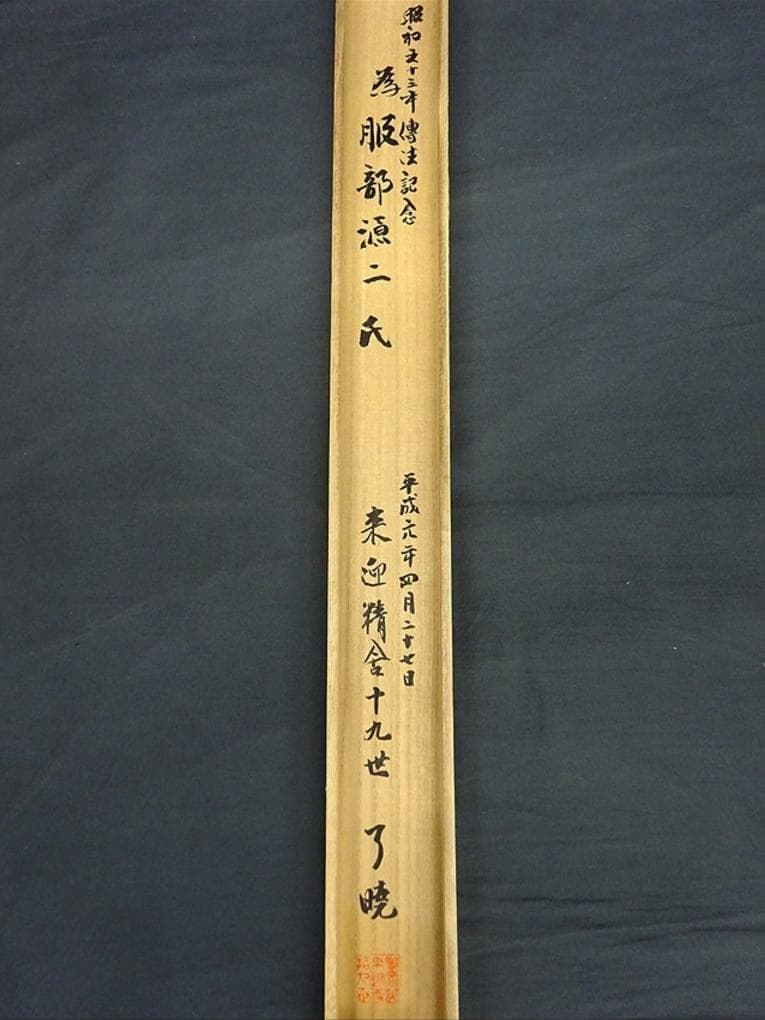 昭和五十三年傳法記念
為服部源二氏
平成元年四月二十七日
来迎精舎十九世 了曉